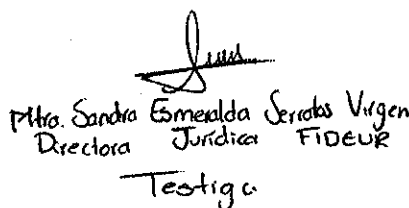 Mtra. Sandra Esmeralda Serratos Virgen
Directora Jurídica FIDEUR
Testiga